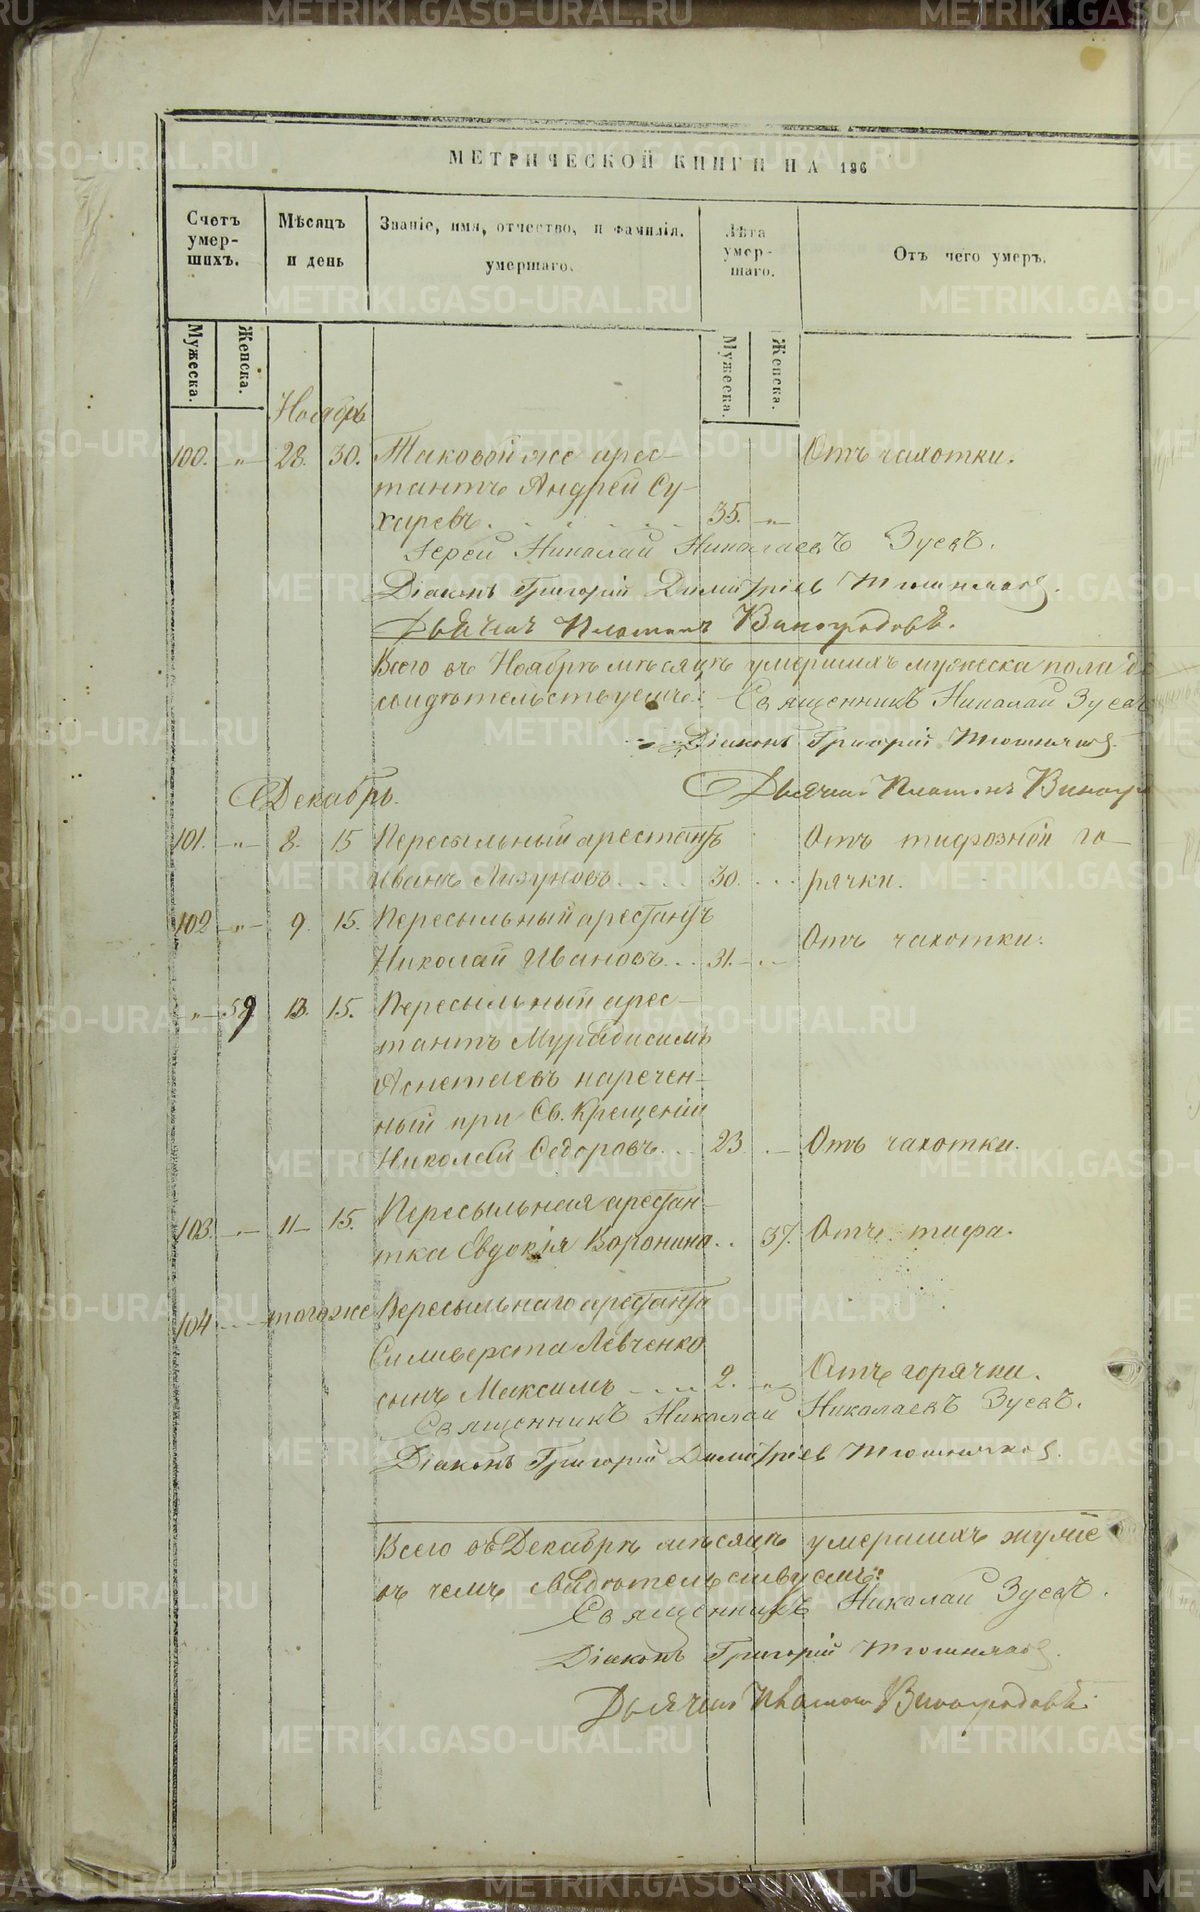 МЕТРИЧЕСКОЙ КНИГИ НА 186
Счетъ умер-шихъ.
Мѣсяцъ и день
Званіе, имя, отчество, и фамилія, умершаго.
Лѣта умер-шаго.
Отъ чего умеръ.
Мужеска. Женска.
Мужеска. Женска.
Ноябрь
100. -"- 28. 30. Таковой же арес- Отъ чахотки.
тантъ Андрей Су-
харевъ. 35. -"-
Іерей Николай Николаевъ Зуевъ.
Діаконъ Григорій Димитріев
Дьячокъ Платонъ Виноградовъ.
Всего въ Ноябрѣ мѣсяцѣ умершихъ мужеска пола
свидѣтельствуемъ: Священникъ Николай Зуевъ
Діаконъ Григорій
Дьячокъ Платонъ Виногр
Декабрь.
101. -"- 8. 15 Пересыльный арестантъ Отъ тифозной го-
Иванъ Лизуновъ 30. рячки.
102 -"- 9. 15. Пересыльный арестантъ
Николай Ивановъ 31. Отъ чахотки.
-"- 59 13. 15. Пересыльный арес-
тантъ
наречен-
ный при Св. Крещеніи
Николай Федоровъ 23 Отъ чахотки.
103. - 11 - 15. Пересыльная арестан-
тка Евдокія Воронина 37. Отъ тифа.
104 того же Пересыльнаго арестанта
Силиверста Левченко
сынъ Максимъ 2. -"- Отъ горячки.
Священникъ Николай Николаевъ Зуевъ.
Діаконъ Григорій Димитріев
Всего въ Декабрѣ мѣсяцѣ умершихъ
въ чемъ свидѣтельствуемъ:
Священникъ Николай Зуевъ.
Діаконъ Григорій
Дьячокъ Платонъ Виноградовъ.
METRIKI.GASO-URAL.RU